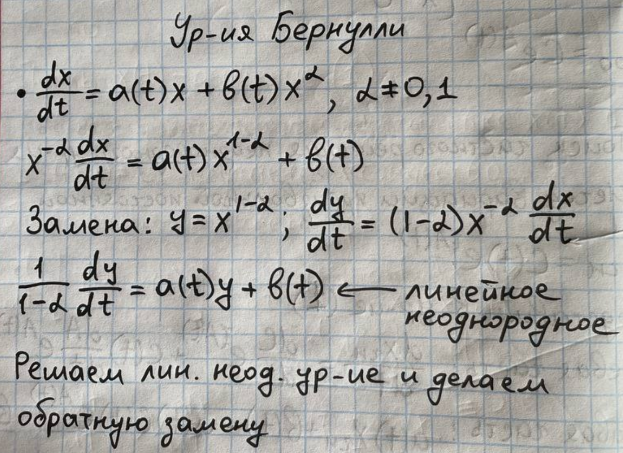 Ур-ия Бернулли
• dx/dt = a(t)x + b(t)x^α, α ≠ 0,1
x^-α dx/dt = a(t)x^1-α + b(t)
Замена: y = x^1-α; dy/dt = (1-α)x^-α dx/dt
1/1-α dy/dt = a(t)y + b(t) ← линейное
неоднородное
Решаем лин. неод. ур-ие и делаем
обратную замену